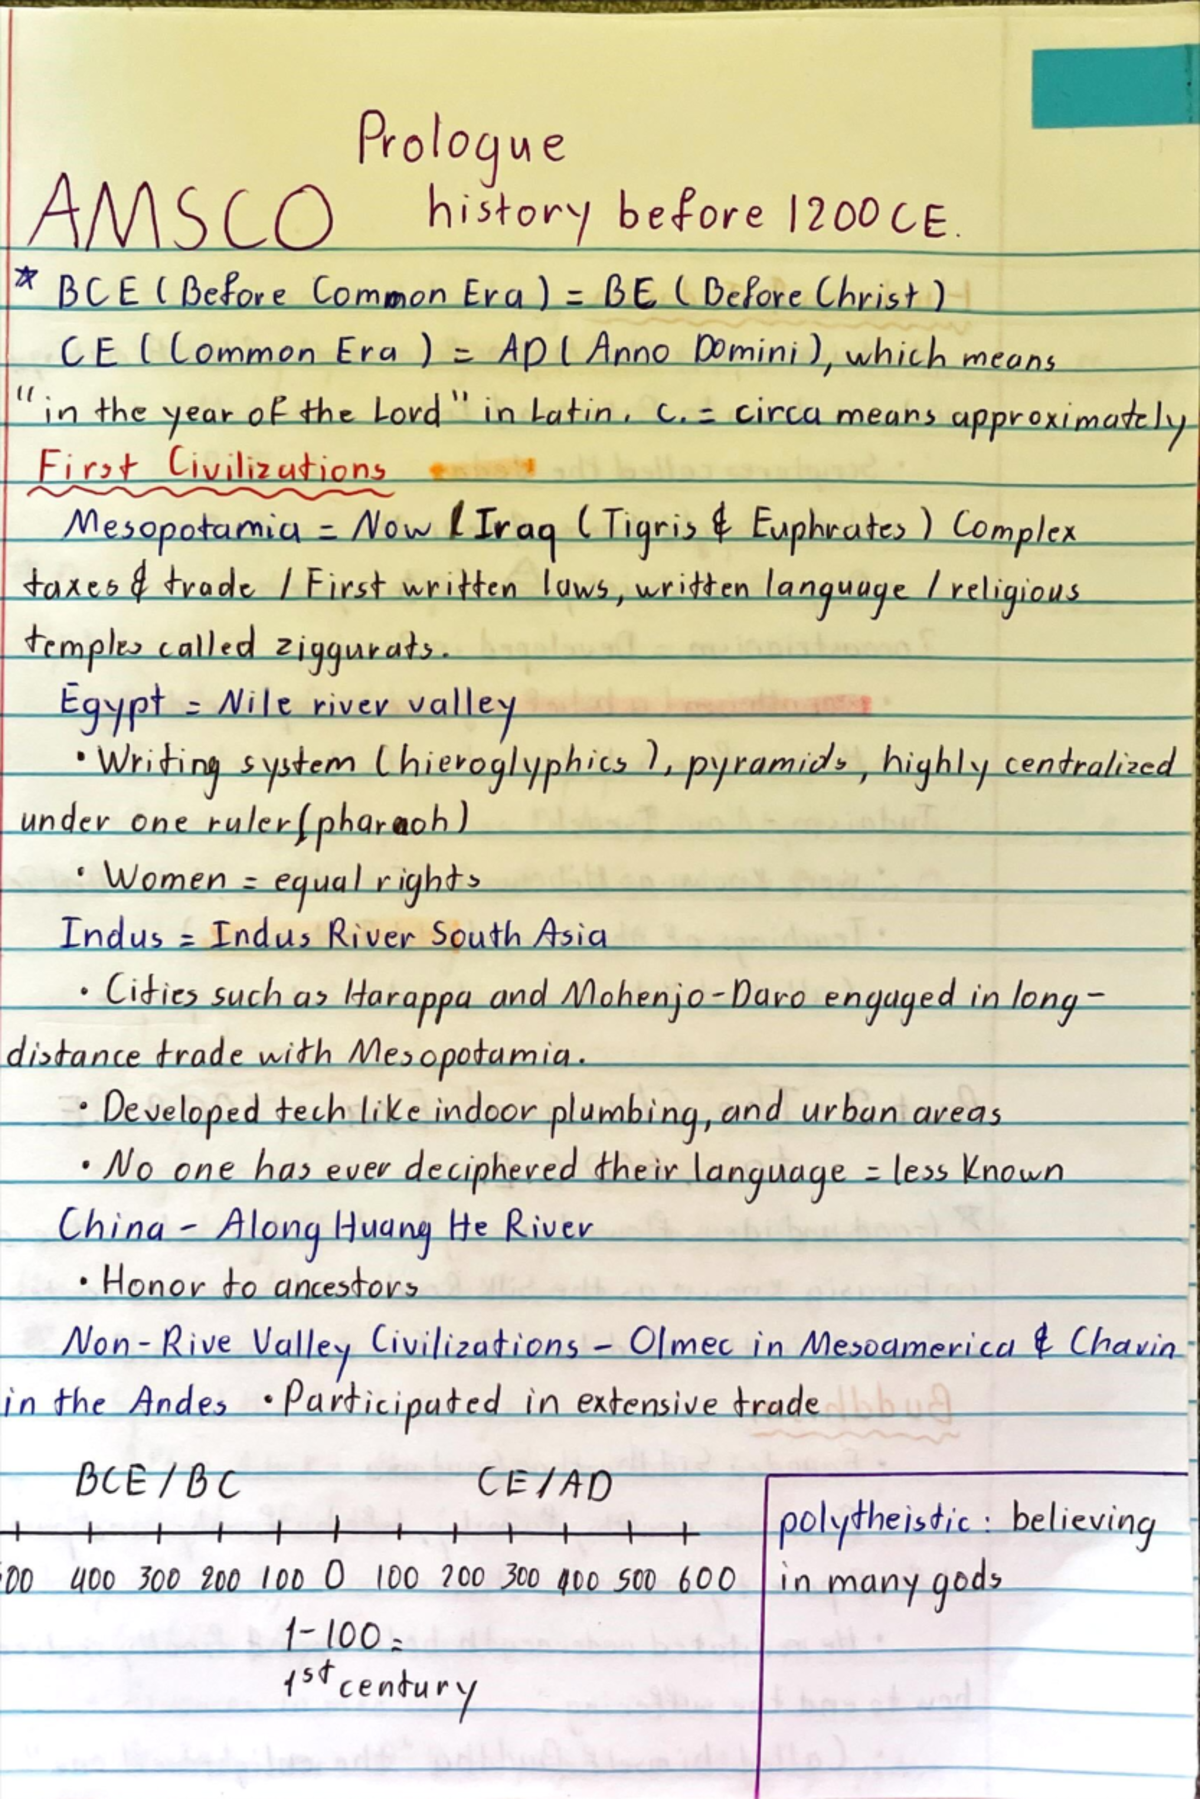 Prologue
AMSCO history before 1200 CE.
* BCE (Before Common Era) = BE (Before Christ)
CE (Common Era) = AD (Anno Domini), which means
"in the year of the Lord" in Latin. c. = circa means approximately
First Civilizations
Mesopotamia = Now Iraq (Tigris & Euphrates) Complex
taxes & trade / First written laws, written language / religious
temples called ziggurats.
Egypt = Nile river valley
• Writing system (hieroglyphics), pyramids, highly centralized
under one ruler (pharaoh)
• Women = equal rights
Indus = Indus River South Asia
• Cities such as Harappa and Mohenjo-Daro engaged in long-
distance trade with Mesopotamia.
• Developed tech like indoor plumbing, and urban areas
• No one has ever deciphered their language = less known
China - Along Huang He River
• Honor to ancestors
Non-Rive Valley Civilizations - Olmec in Mesoamerica & Chavin
in the Andes • Participated in extensive trade
BCE/BC CE/AD
00 400 300 200 100 0 100 200 300 400 500 600
1-100 =
1st century
polytheistic: believing
in many gods